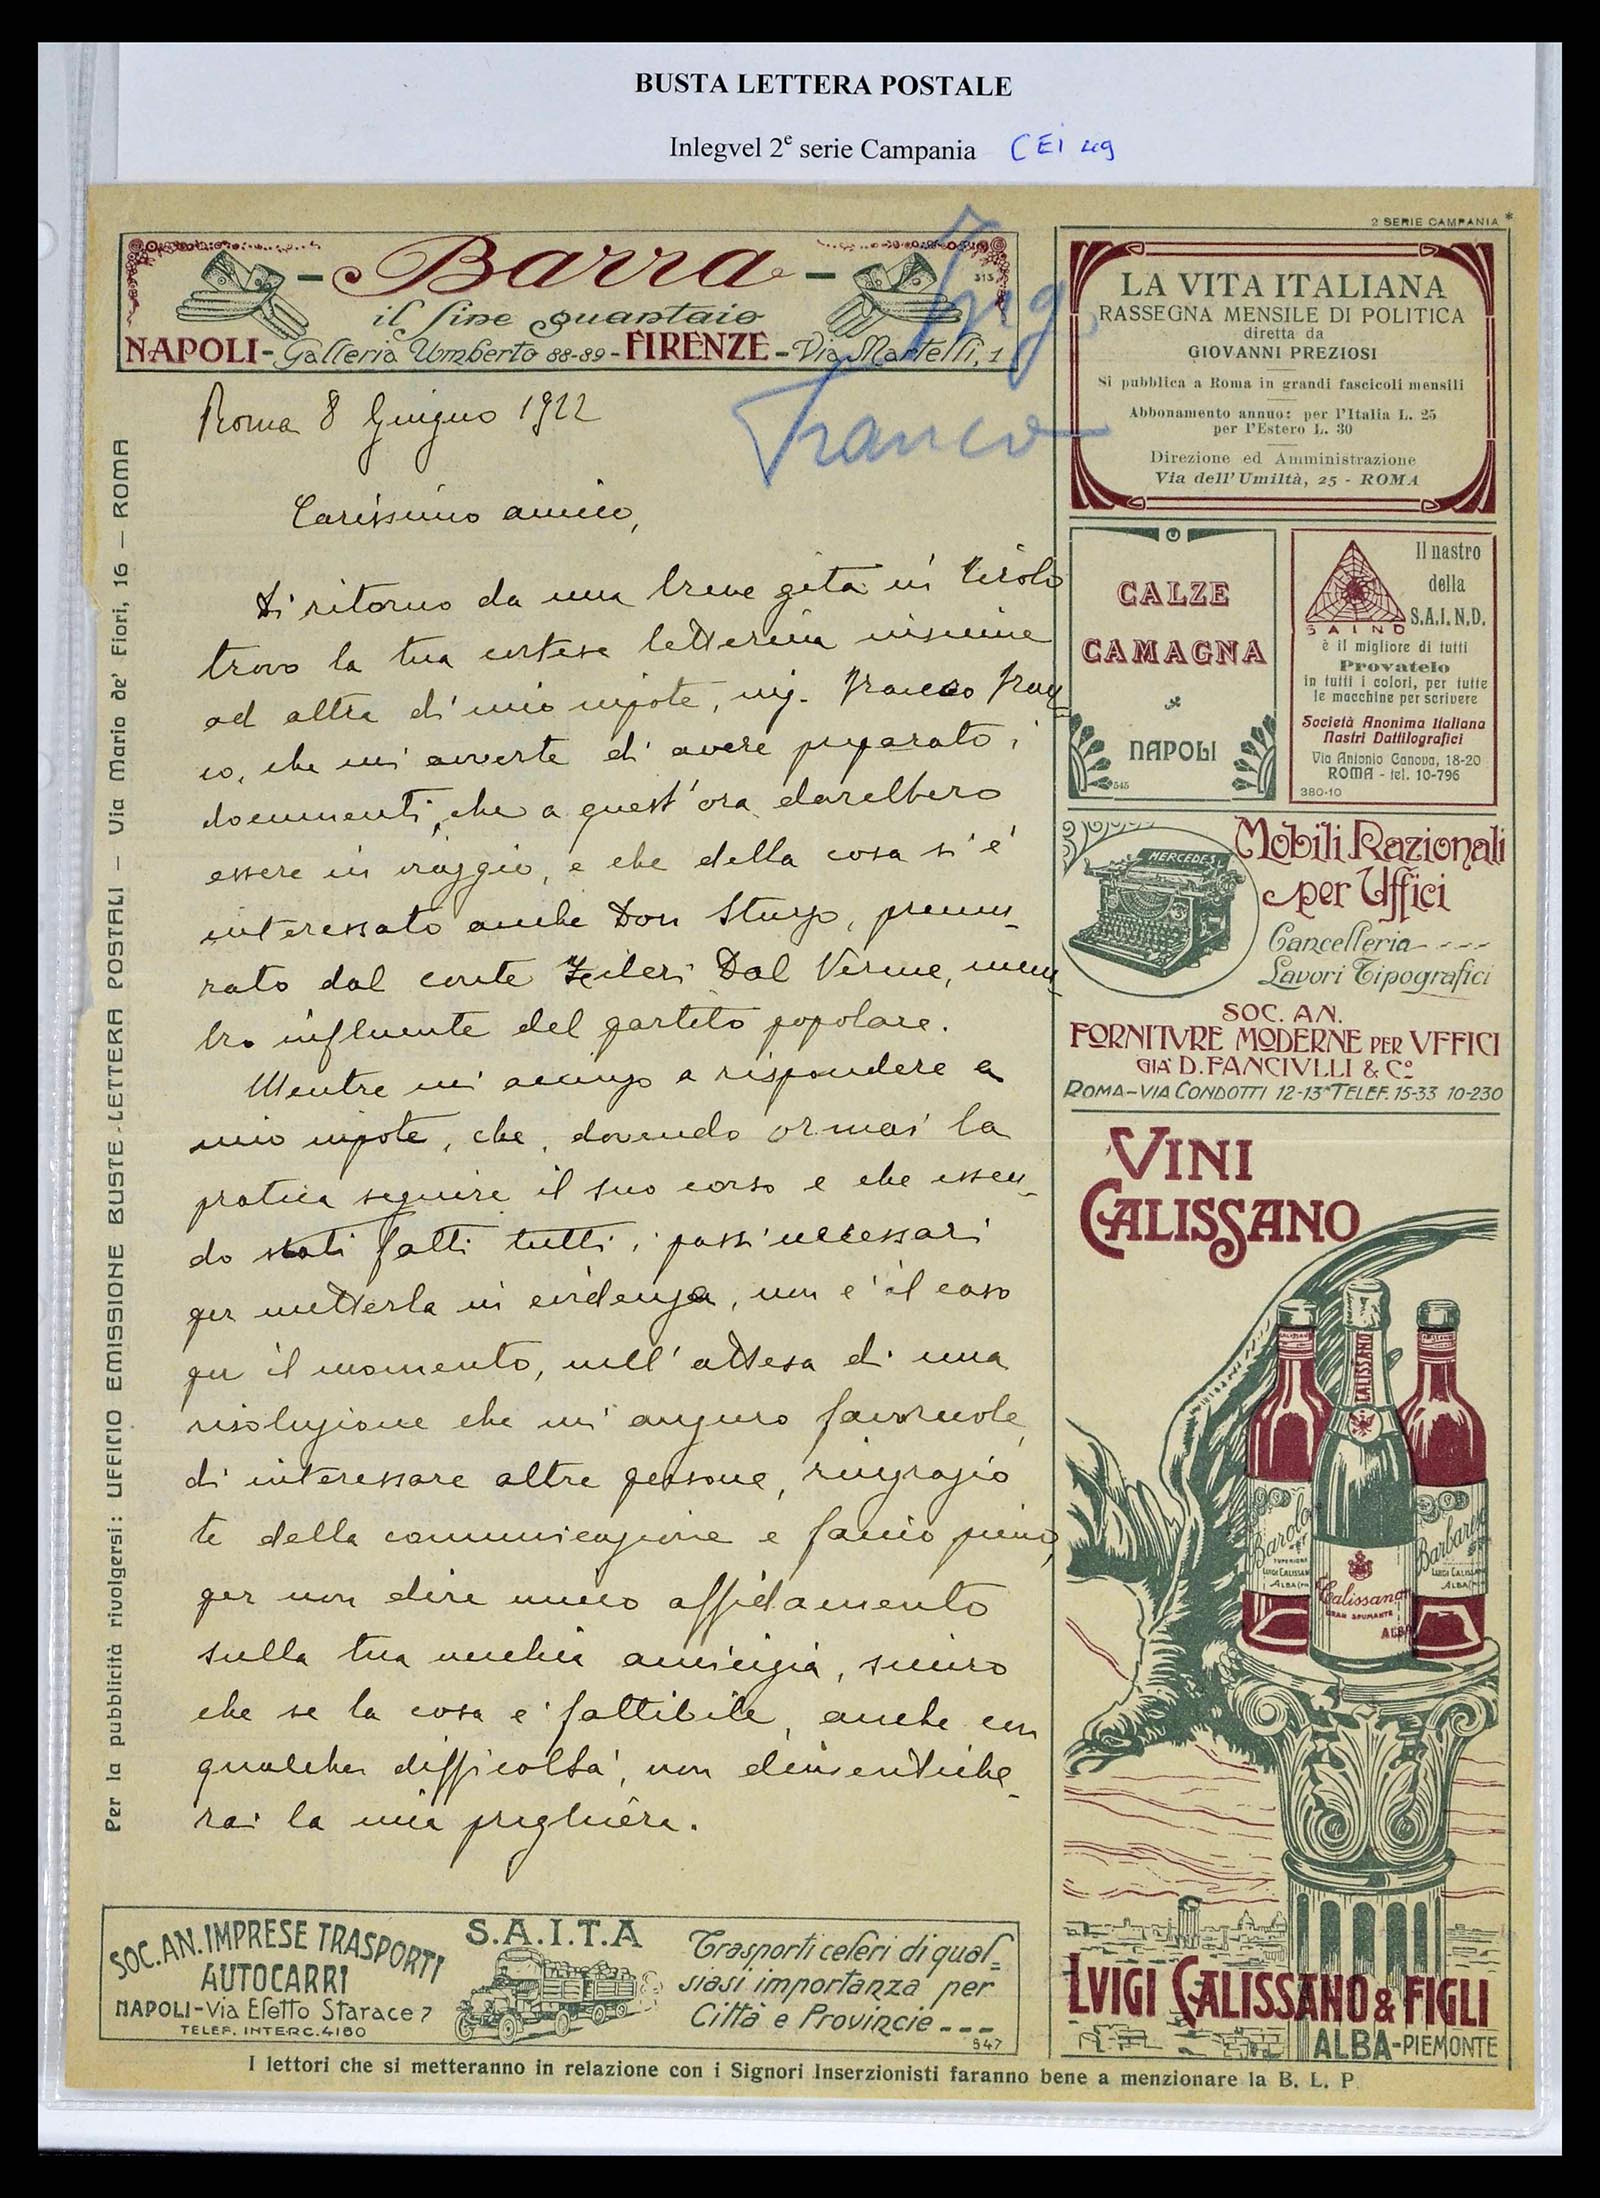 BUSTA LETTERA POSTALE
Inlegvel 2e serie Campania CEi 49
2 SERIE CAMPANIA *
- Barra -
313
il fine guantaio
NAPOLI - Galleria Umberto 88-89 - FIRENZE - Via Martelli, 1
Ing.
Franco
Roma 8 Giugno 1922
Carissimo amico,
Di ritorno da una breve gita in Tirolo
trovo la tua cortese letterina insieme
ad altra di mio nipote, ing. Franco
co, che mi avverte di avere preparato i
documenti, che a quest'ora darebbero
essere in viaggio, e che della cosa si è
interessato anche Don Sturzo, premu-
rato dal conte Zileri Dal Verme, mem-
bro influente del partito popolare.
Mentre mi accingo a rispondere a
mio nipote, che, dovendo ormai la
pratica seguire il suo corso e che essen-
do stati fatti tutti i passi necessari
per metterla in evidenza, non è il caso
per il momento, nell'attesa di una
risoluzione che mi auguro favorevole,
di interessare altre persone, ringrazio
te della comunicazione e faccio pieno,
per non dire unico affidamento
sulla tua vecchia amicizia, sicuro
che se la cosa è fattibile, anche con
qualche difficoltà, non dimentiche-
rai la mia preghiera.
Per la pubblicità rivolgersi: UFFICIO EMISSIONE BUSTE-LETTERA POSTALI - Via Mario de' Fiori, 16 - ROMA
LA VITA ITALIANA
RASSEGNA MENSILE DI POLITICA
diretta da
GIOVANNI PREZIOSI
Si pubblica a Roma in grandi fascicoli mensili
Abbonamento annuo: per l'Italia L. 25
per l'Estero L. 30
Direzione ed Amministrazione
Via dell'Umiltà, 25 - ROMA
CALZE
CAMAGNA
NAPOLI
545
Il nastro
della
S.A.I.N.D.
SAIND
è il migliore di tutti
Provatelo
in tutti i colori, per tutte
le macchine per scrivere
Società Anonima Italiana
Nastri Dattilografici
Via Antonio Canova, 18-20
ROMA - tel. 10-796
380-10
MERCEDES
Mobili Razionali
per Uffici
Cancelleria - - -
Lavori Tipografici
SOC. AN.
FORNITVRE MODERNE PER VFFICI
GIÀ D. FANCIVLLI & Co
ROMA-VIA CONDOTTI 12-13A TELEF. 15-33 10-230
VINI
CALISSANO
CALISSANO
CALISSANO
Barolo
SUPERIORE
LUIGI CALISSAN
ALBA
Calissano
GRAN SPUMANTE
ALBA
Barbaresc
LUIGI CALISSAN
ALBA
LVIGI CALISSANO & FIGLI
ALBA-PIEMONTE
SOC. AN. IMPRESE TRASPORTI
AUTOCARRI
NAPOLI-Via Eletto Starace 7
TELEF. INTERC. 4180
S.A.I.T.A
Trasporti celeri di qual-
siasi importanza per
Città e Provincie - - -
547
I lettori che si metteranno in relazione con i Signori Inserzionisti faranno bene a menzionare la B. L. P.